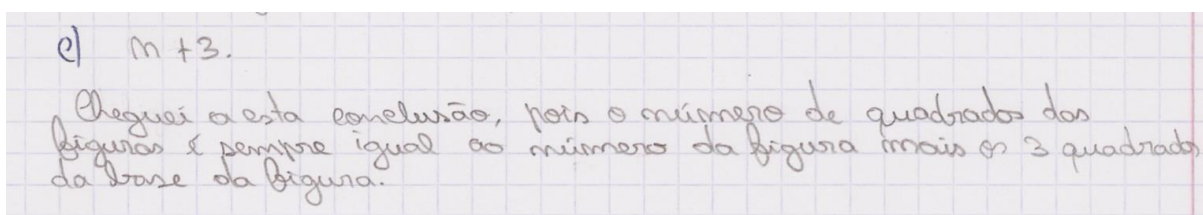 e) n + 3.
Cheguei a esta conclusão, pois o número de quadrados das
figuras é sempre igual ao número da figura mais os 3 quadrados
da base da figura.